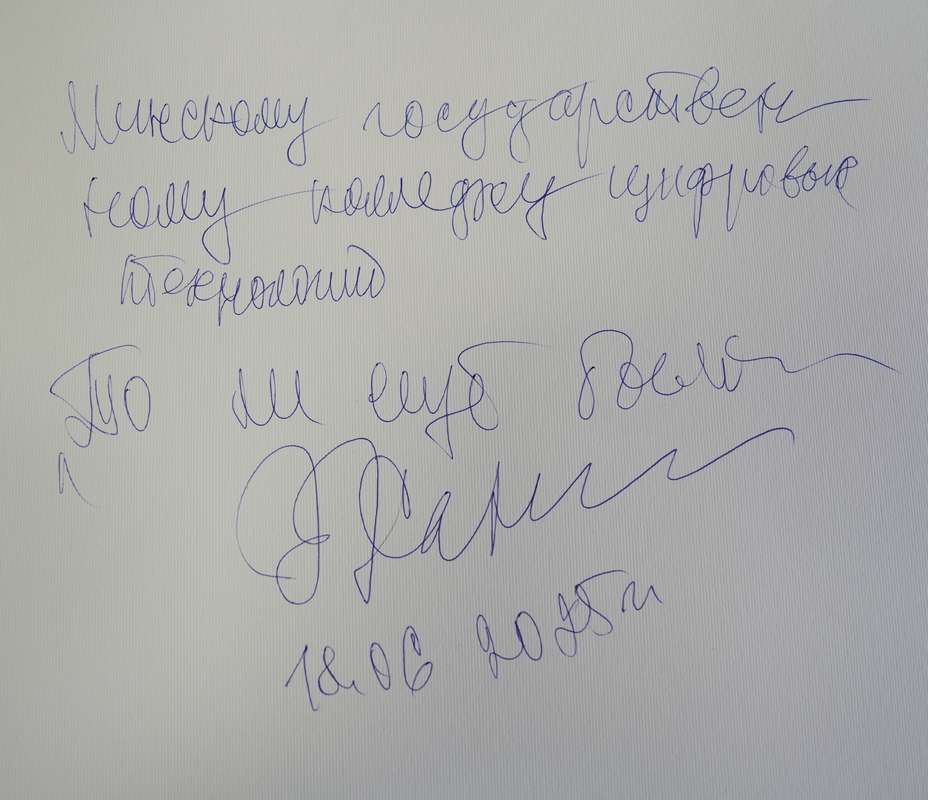 Минскому государствен
ному колледжу цифровых
технологий
То ли ещё будет
18.06 2025г